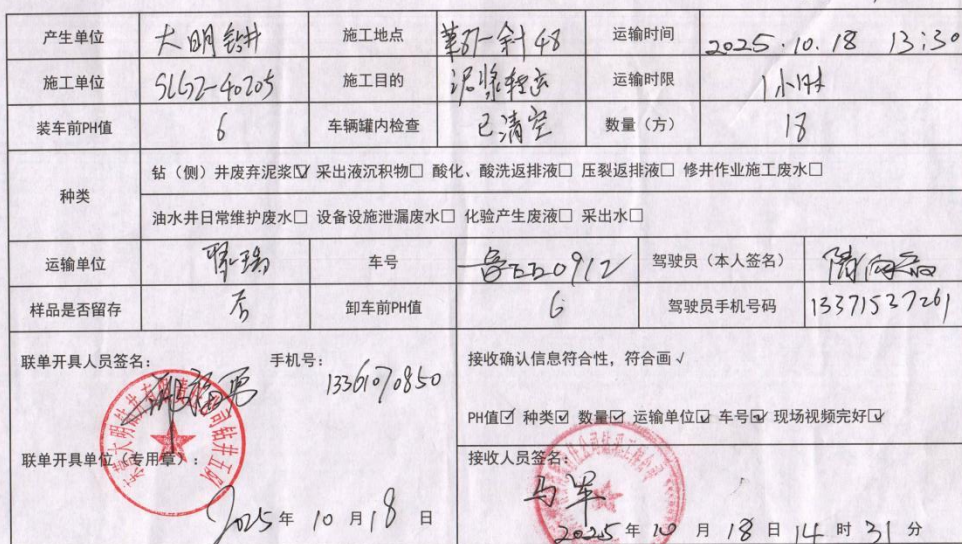 产生单位 大明钻井 施工地点 草31-斜48 运输时间 2025.10.18 13:30
施工单位 SLGZ-40205 施工目的 泥浆转运 运输时限 1小时
装车前PH值 6 车辆罐内检查 已清空 数量（方） 18
种类 钻（侧）井废弃泥浆☑ 采出液沉积物□ 酸化、酸洗返排液□ 压裂返排液□ 修井作业施工废水□
油水井日常维护废水□ 设备设施泄漏废水□ 化验产生废液□ 采出水□
运输单位 车号 鲁EE0912 驾驶员（本人签名）
样品是否留存 否 卸车前PH值 6 驾驶员手机号码 13371537261
联单开具人员签名： 手机号： 13361070850
接收确认信息符合性，符合画√
PH值☑ 种类☑ 数量☑ 运输单位☑ 车号☑ 现场视频完好☑
联单开具单位（专用章）：
2025年10月18日
接收人员签名：
马军
2025年10月18日14时31分